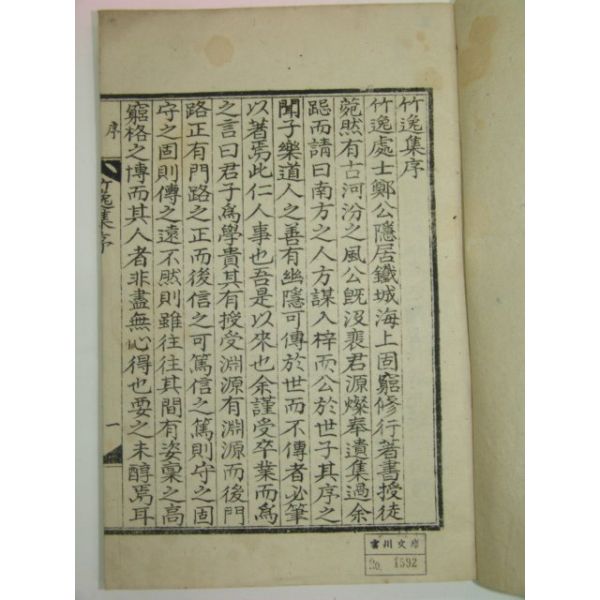 竹逸集序
竹逸處士鄭公隱居鐵城海上固窮修行著書授徒
菀然有古河汾之風公旣沒裵君源燦奉遺集過余
跽而請曰南方之人方謀入梓而公於世子其序之
聞子樂道人之善有幽隱可傳於世而不傳者必筆
以著焉此仁人事也吾是以來也余謹受卒業而爲
之言曰君子爲學貴其有授受淵源有淵源而後門
路正有門路之正而後信之可篤信之篤則守之固
守之固則傳之遠不然則雖往往其間有姿稟之高
窮格之博而其人者非盡無心得也要之未醇焉耳
序
竹逸集序
一
雲川文庫
No. 1592